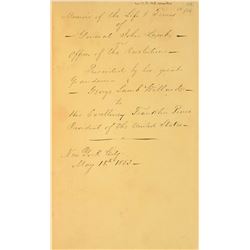 Memoir of the Life & Times
of
General John Lamb
an
Officer of the Revolution
Presented by his great
Grandson
George Lamb Willard
to
His Excellency Franklin Pierce
President of the United States
New York City
May 18th 1853